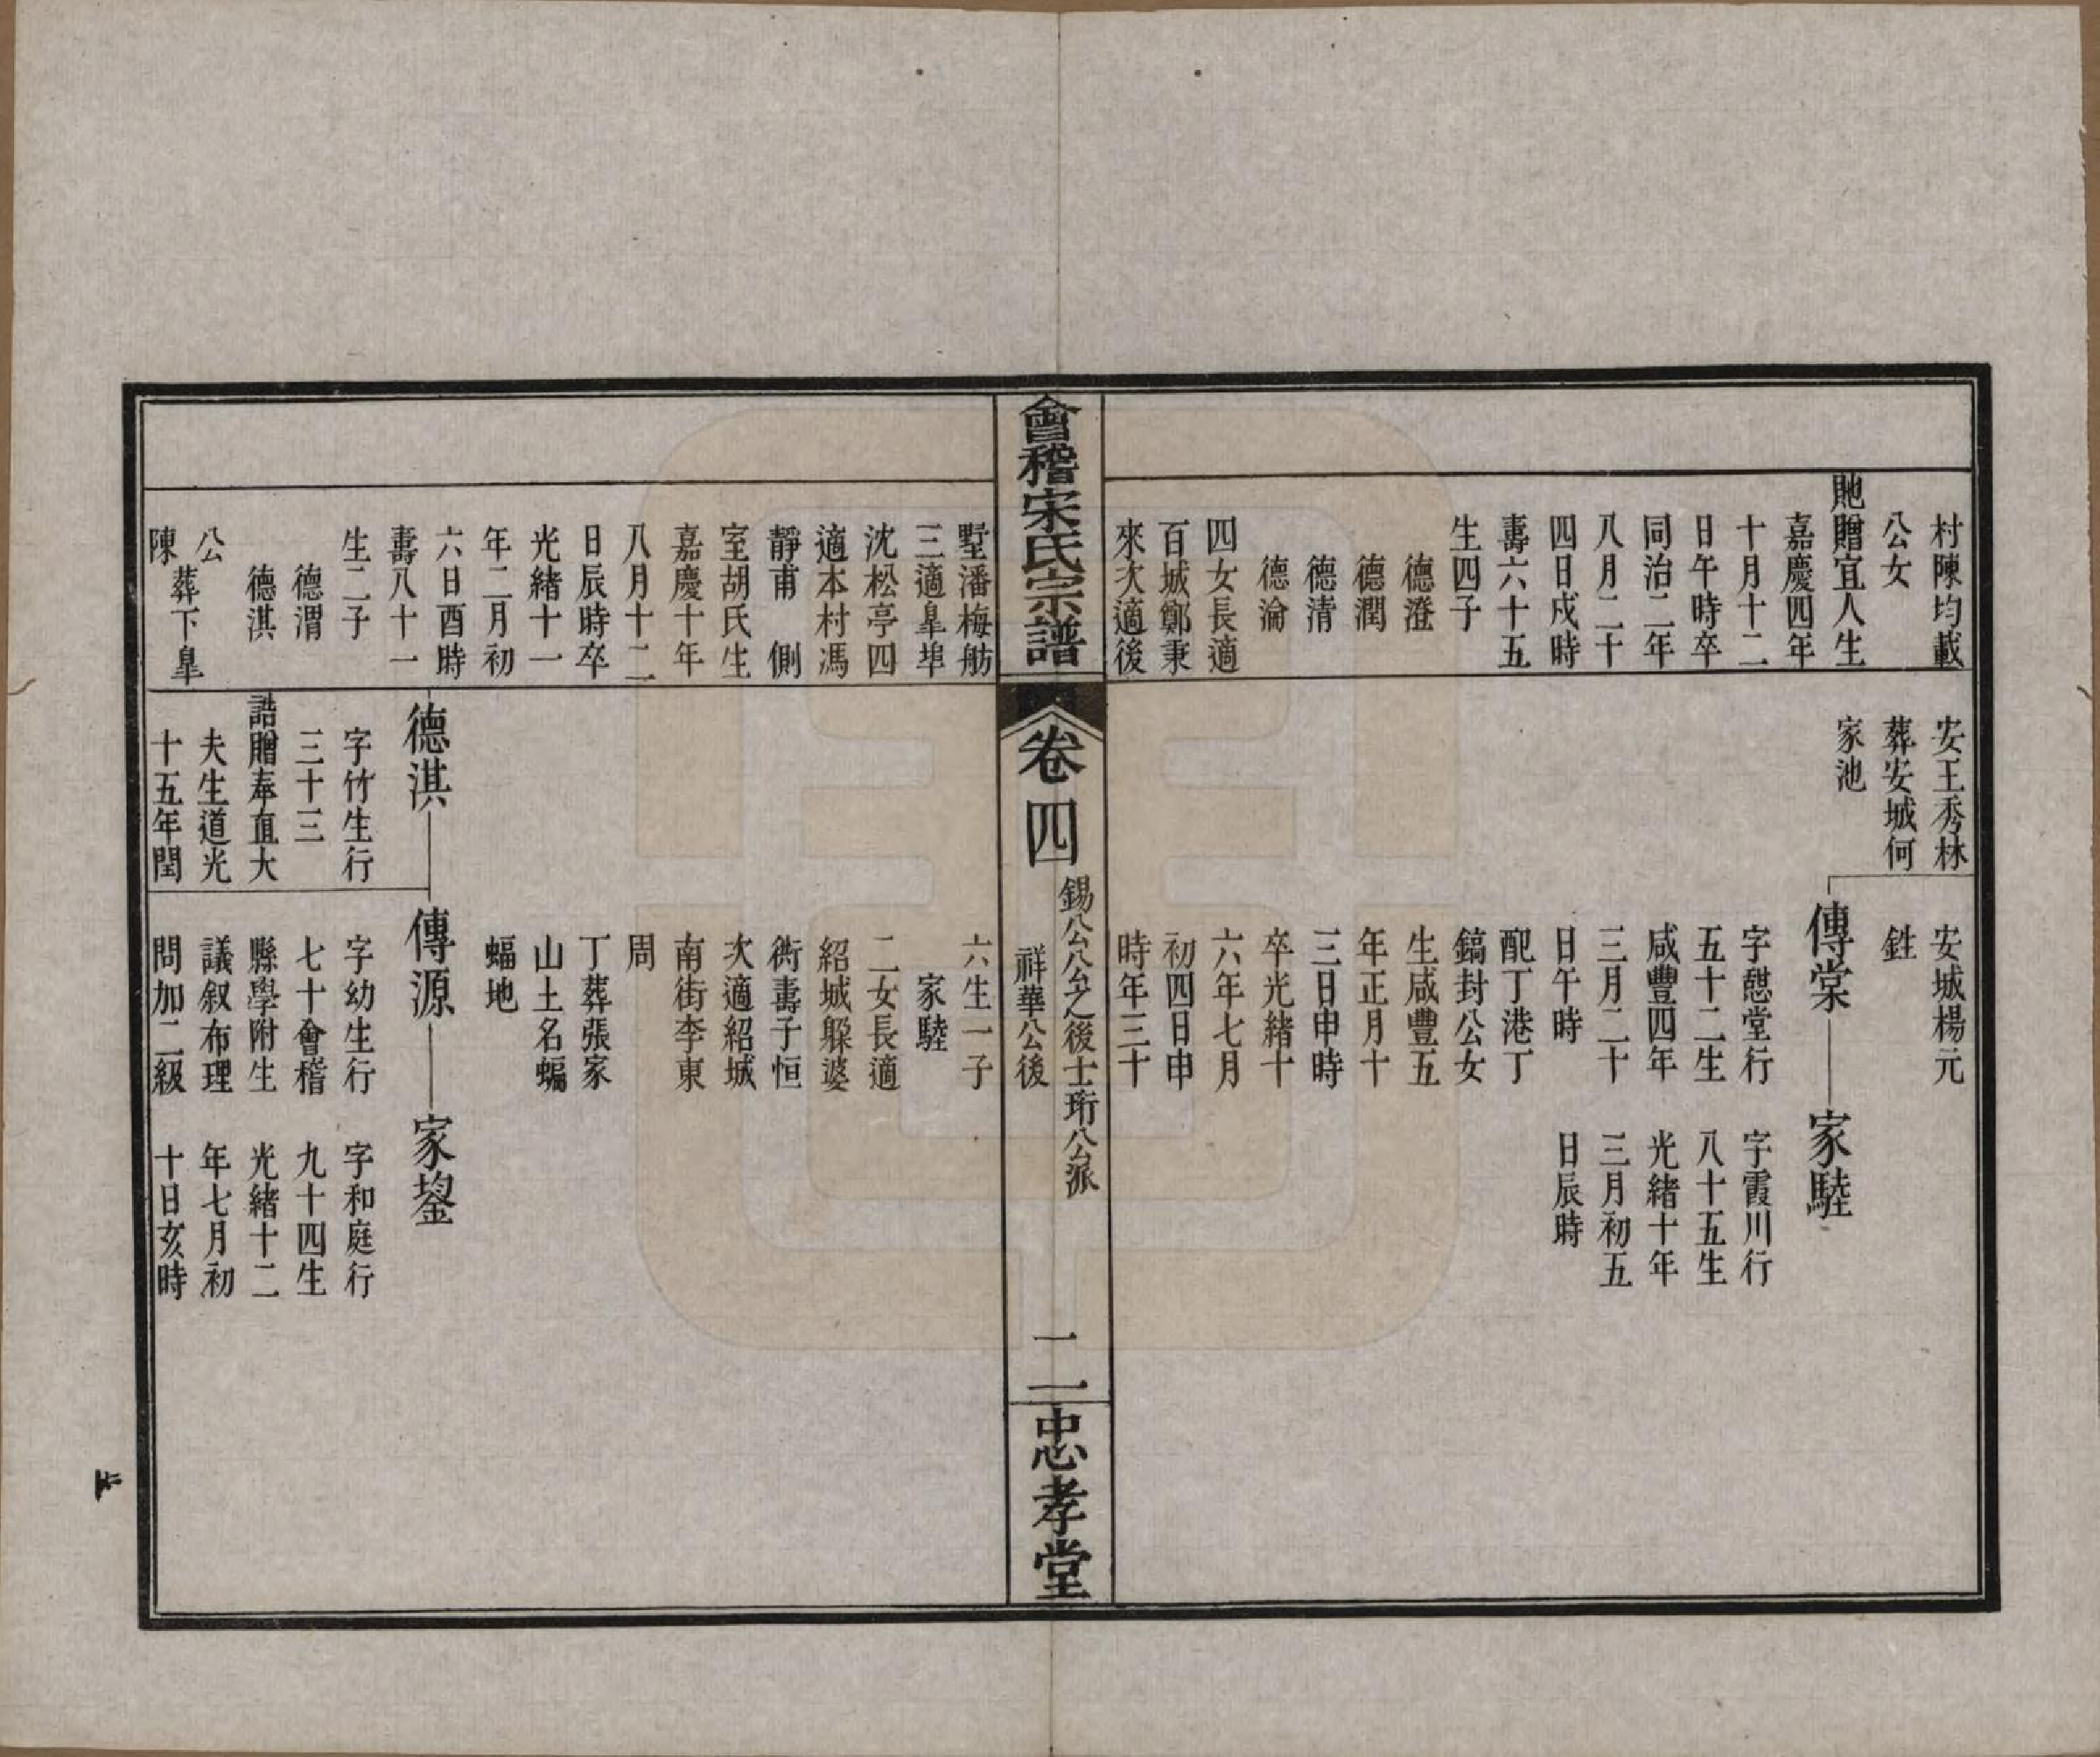 村陳均載
公女
貤贈宜人生
嘉慶四年
十月十二
日午時卒
同治二年
八月二十
四日戍時
壽六十五
生四子
德澄
德潤
德清
德瀹
四女長適
百城鄭秉
來次適後
安王秀林
葬安城何
家池
安城楊元
鉎
傳棠
字憇堂行
五十二生
咸豐四年
三月二十
日午時
配丁港丁
鎬封公女
生咸豐五
年正月十
三日申時
卒光緒十
六年七月
初四日申
時年三十
家騞
字霞川行
八十五生
光緒十年
三月初五
日辰時
會稽宋氏宗譜
卷四
錫公公之後士珩公派
祥華公後
二
忠孝堂
墅潘梅舫
三適臯埠
沈松亭四
適本村馮
靜甫 側
室胡氏生
嘉慶十年
八月十二
日辰時卒
光緒十一
年二月初
六日酉時
壽八十一
生二子
德渭
德淇
公
葬下臯
陳
六生一子
家騞
二女長適
紹城躲婆
衖壽子恒
次適紹城
南街李東
周
丁葬張家
山土名蝙
蝠地
德淇
字竹生行
三十三
誥贈奉直大
夫生道光
十五年閏
傳源
字幼生行
七十會稽
縣學附生
議叙布理
問加二級
家鋆
字和庭行
九十四生
光緒十二
年七月初
十日亥時